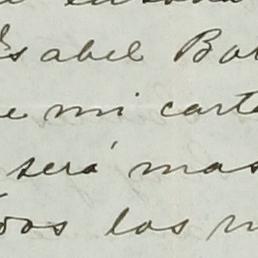 Isabel Bo
mi cart
será mas
dos los